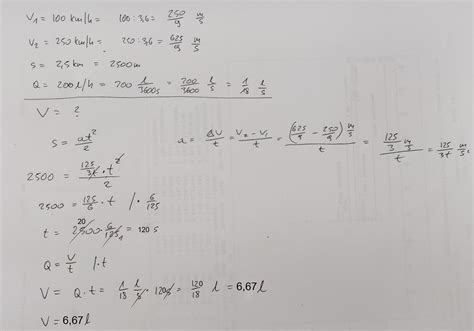 V₁ = 100 km/h = 100 : 3,6 = 250/9 m/s
V₂ = 250 km/h = 250 : 3,6 = 625/9 m/s
s = 2,5 km = 2500 m
Q = 200 l/h = 200 l/3600s = 200/3600 l/s = 1/18 l/s
V = ?
s = at²/2
a = ΔV/t = V₂ - V₁/t = (625/9 - 250/9) m/s / t = 125/3 m/s / t = 125/3t m/s²
2500 = 125/3t · t² / 2
2500 = 125/6 · t / · 6/125
t = 2500 20 · 6/125 1 = 120 s
Q = V/t / · t
V = Q · t = 1/18 l/s · 120s = 120/18 l = 6,67 l
V = 6,67 l